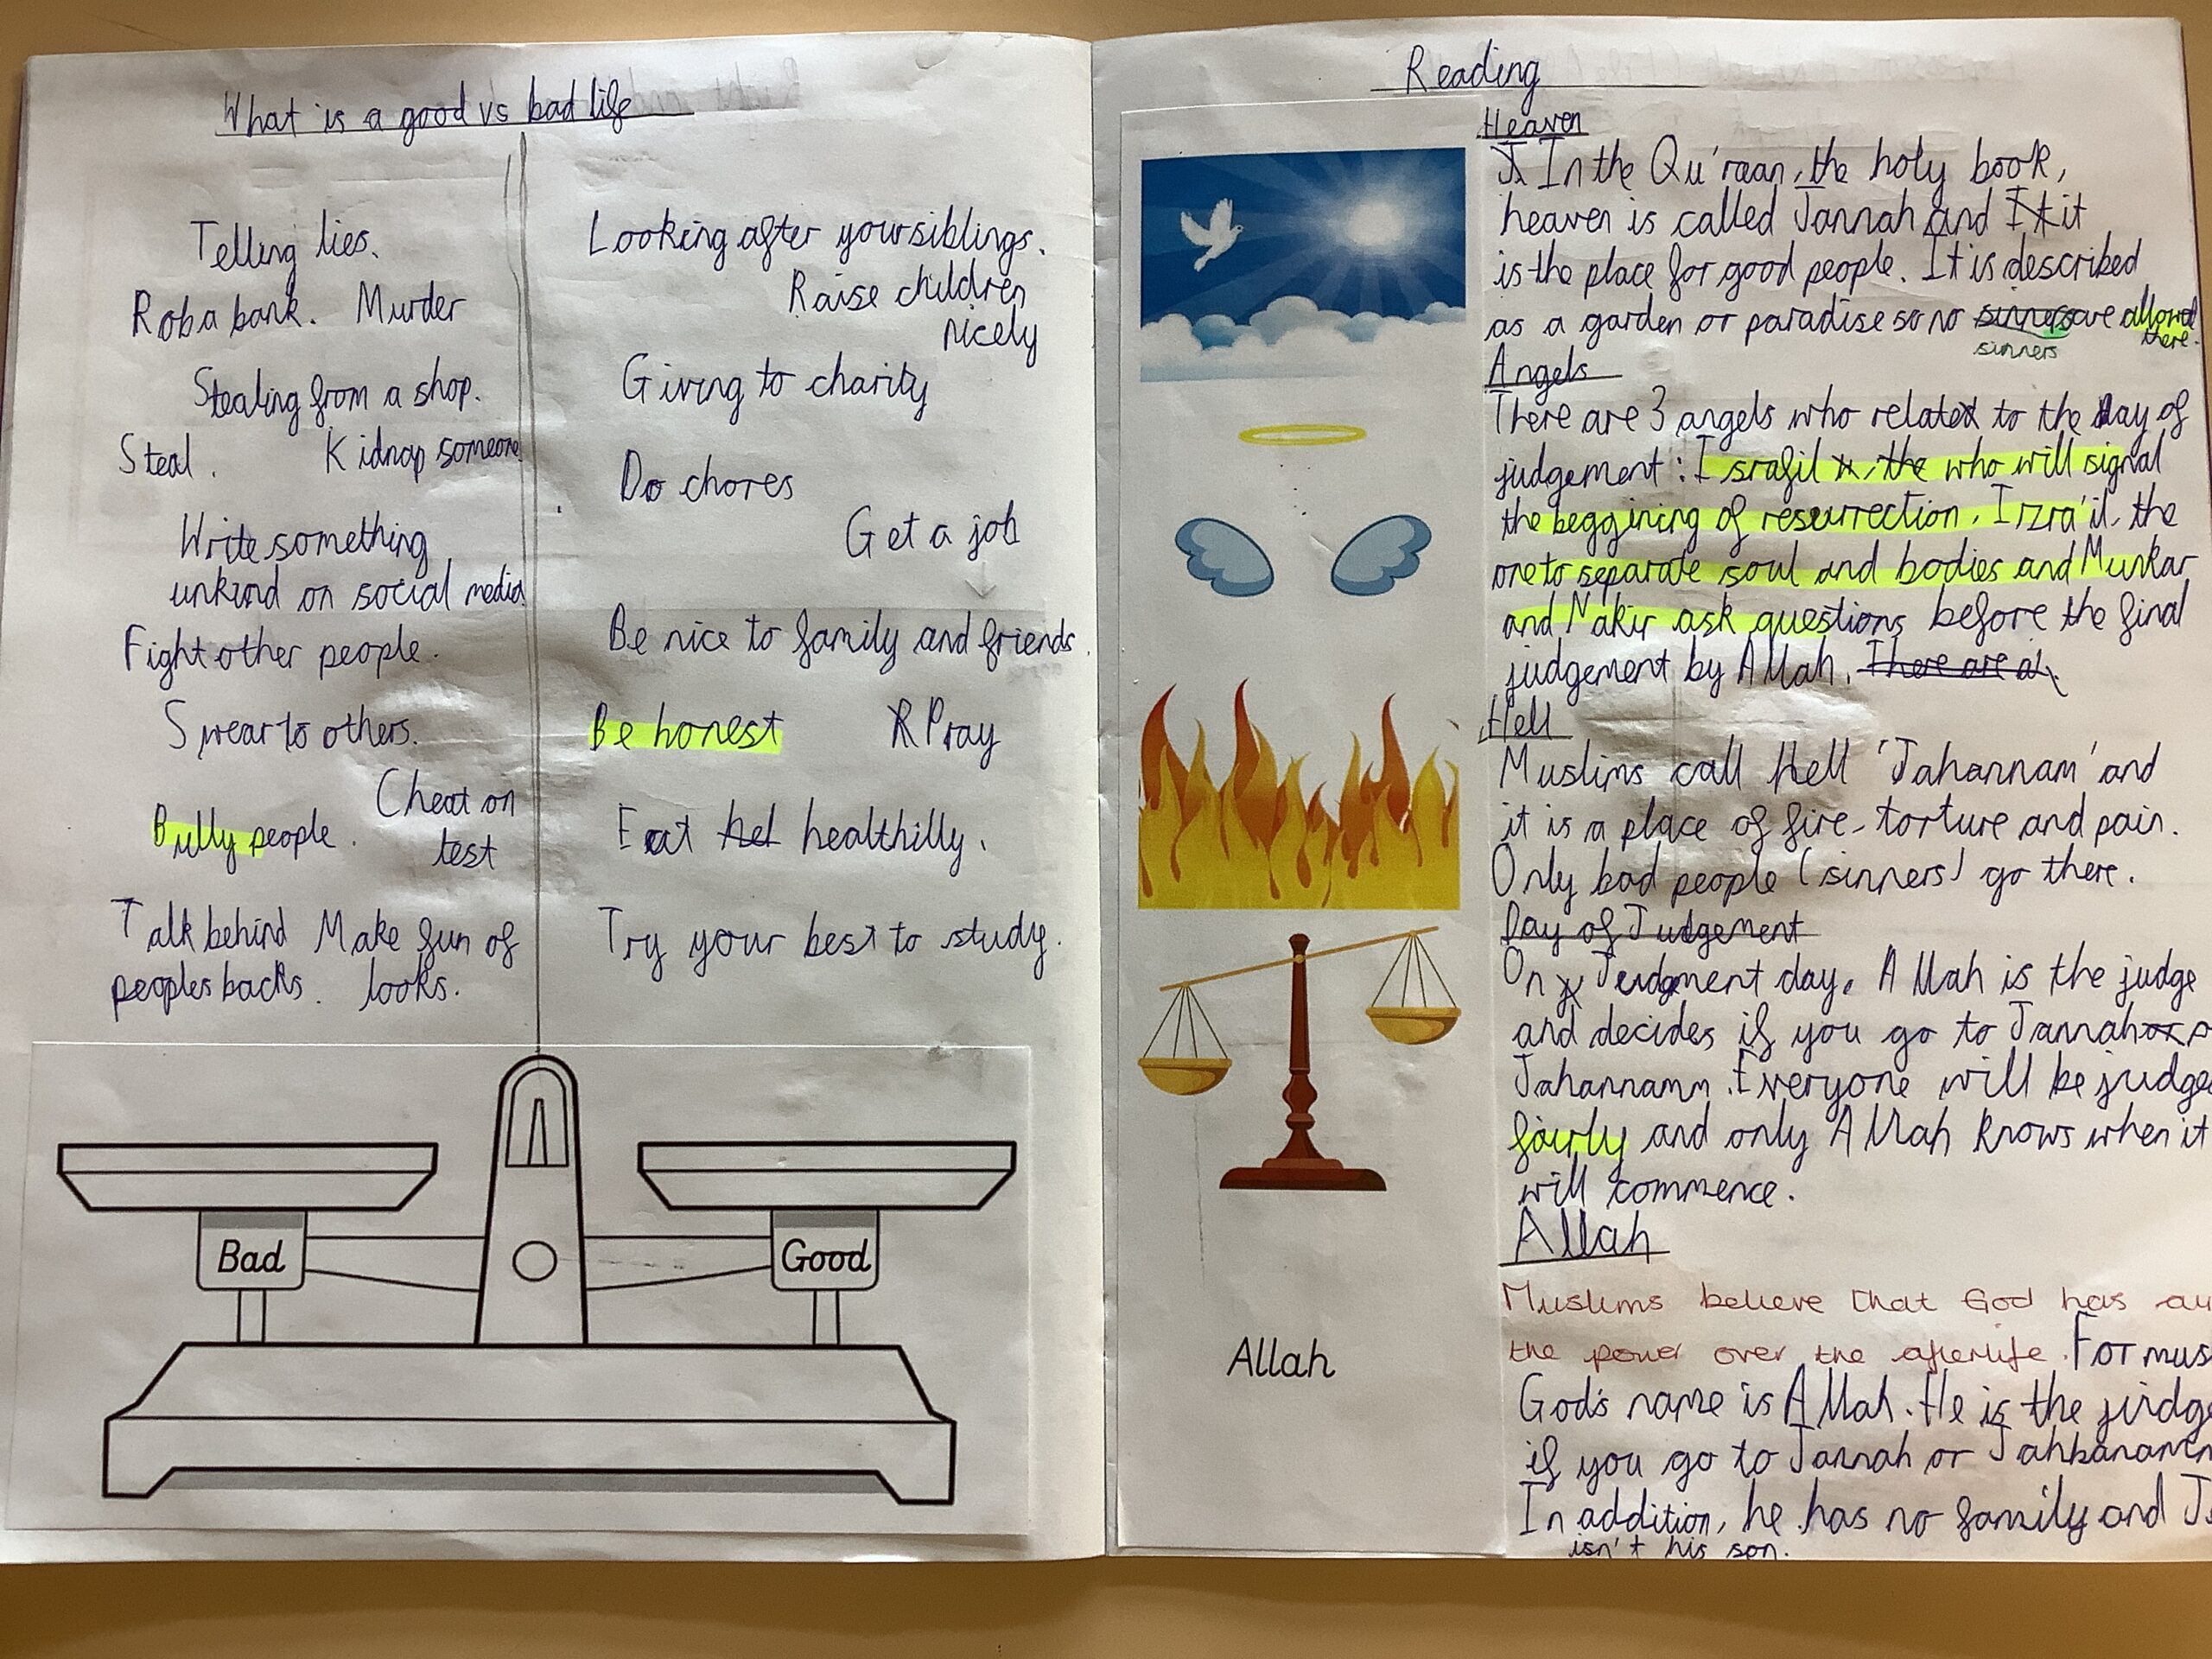 What is a good vs bad life
Telling lies.
Rob a bank. Murder
Stealing from a shop.
Steal. Kidnap someone
Write something
unkind on social media
Fight other people.
Swear to others.
Cheat on
Bully people.
test
Talk behind Make fun of
peoples backs. looks.
Looking after your siblings.
Raise children
nicely
Giving to charity
Do chores
Get a job
Be nice to family and friends.
Be honest Pray
Eat hel healthilly.
Try your best to study.
Bad Good
Reading
Heaven
In the Qu'raan, the holy book,
heaven is called Jannah and It it
is the place for good people. It is described
as a garden or paradise so no sinners are allowed
sinners there.
Angels
There are 3 angels who relate to the Day of
judgement: Israfil , the who will signal
the beggining of resurrection, Irzra'il, the
one to separate soul and bodies and Munkar
and Nakir ask questions before the final
judgement by Allah. There are a
Hell
Muslims call Hell 'Jahannam' and
it is a place of fire, torture and pain.
Only bad people (sinners) go there.
Day of Judgement
On j Judgment day, Allah is the judge
and decides if you go to Jannah or
Jahannamn. Everyone will be judge
fairly and only Allah knows when it
will commence.
Allah
Allah
Muslims believe that God has
the power over the afterlife. For mus
God's name is Allah. He is the judge
if you go to Jannah or
In addition, he has no family and
isn't his son.